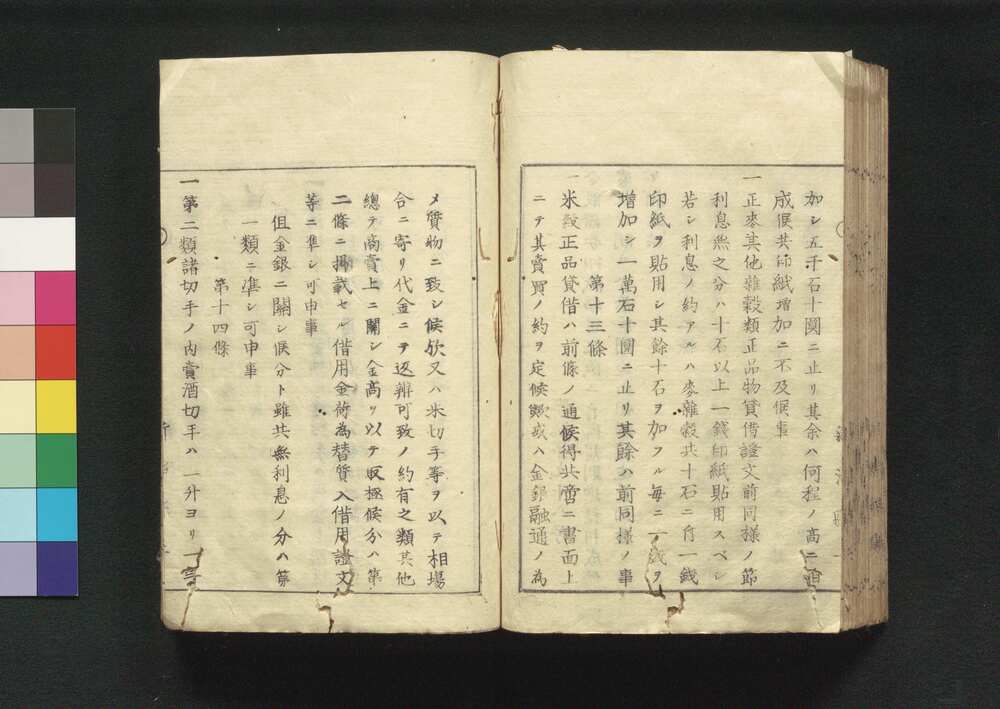 加シ五千石十圓ニ止リ其余ハ何程ノ高ニ
成候共印紙増加ニ不及候事
一正麥其他雜穀類正品物貸借證文前同様ノ節
利息無之分ハ十石以上一錢印紙貼用スベシ
若シ利息ノ約アルハ麥雜穀共十石ニ付一錢
印紙ヲ貼用シ其餘十石ヲ加フル毎ニ一錢ヲ
増加シ一萬石十圓ニ止リ其餘ハ前同様ノ事
第十三條
一米穀正品貸借ハ前條ノ通候得共啻ニ書面上
ニテ其賣買ノ約ヲ定候歟或ハ金銀融通ノ為
メ質物ニ致シ候欤又ハ米切手等ヲ以テ相場
合ニ寄リ代金ニテ返辨可致ノ約有之類其他
總テ商賣上ニ關シ金高ヲ以テ取極候分ハ第
二條ニ掲載セル借用金荷為替質入借用證文
等ニ準シ可申事
但金銀ニ關シ候分ト雖共無利息ノ分ハ第
一類ニ準シ可申事
第十四條
一第二類諸切手ノ内賣酒切手ハ一升ヨリ一